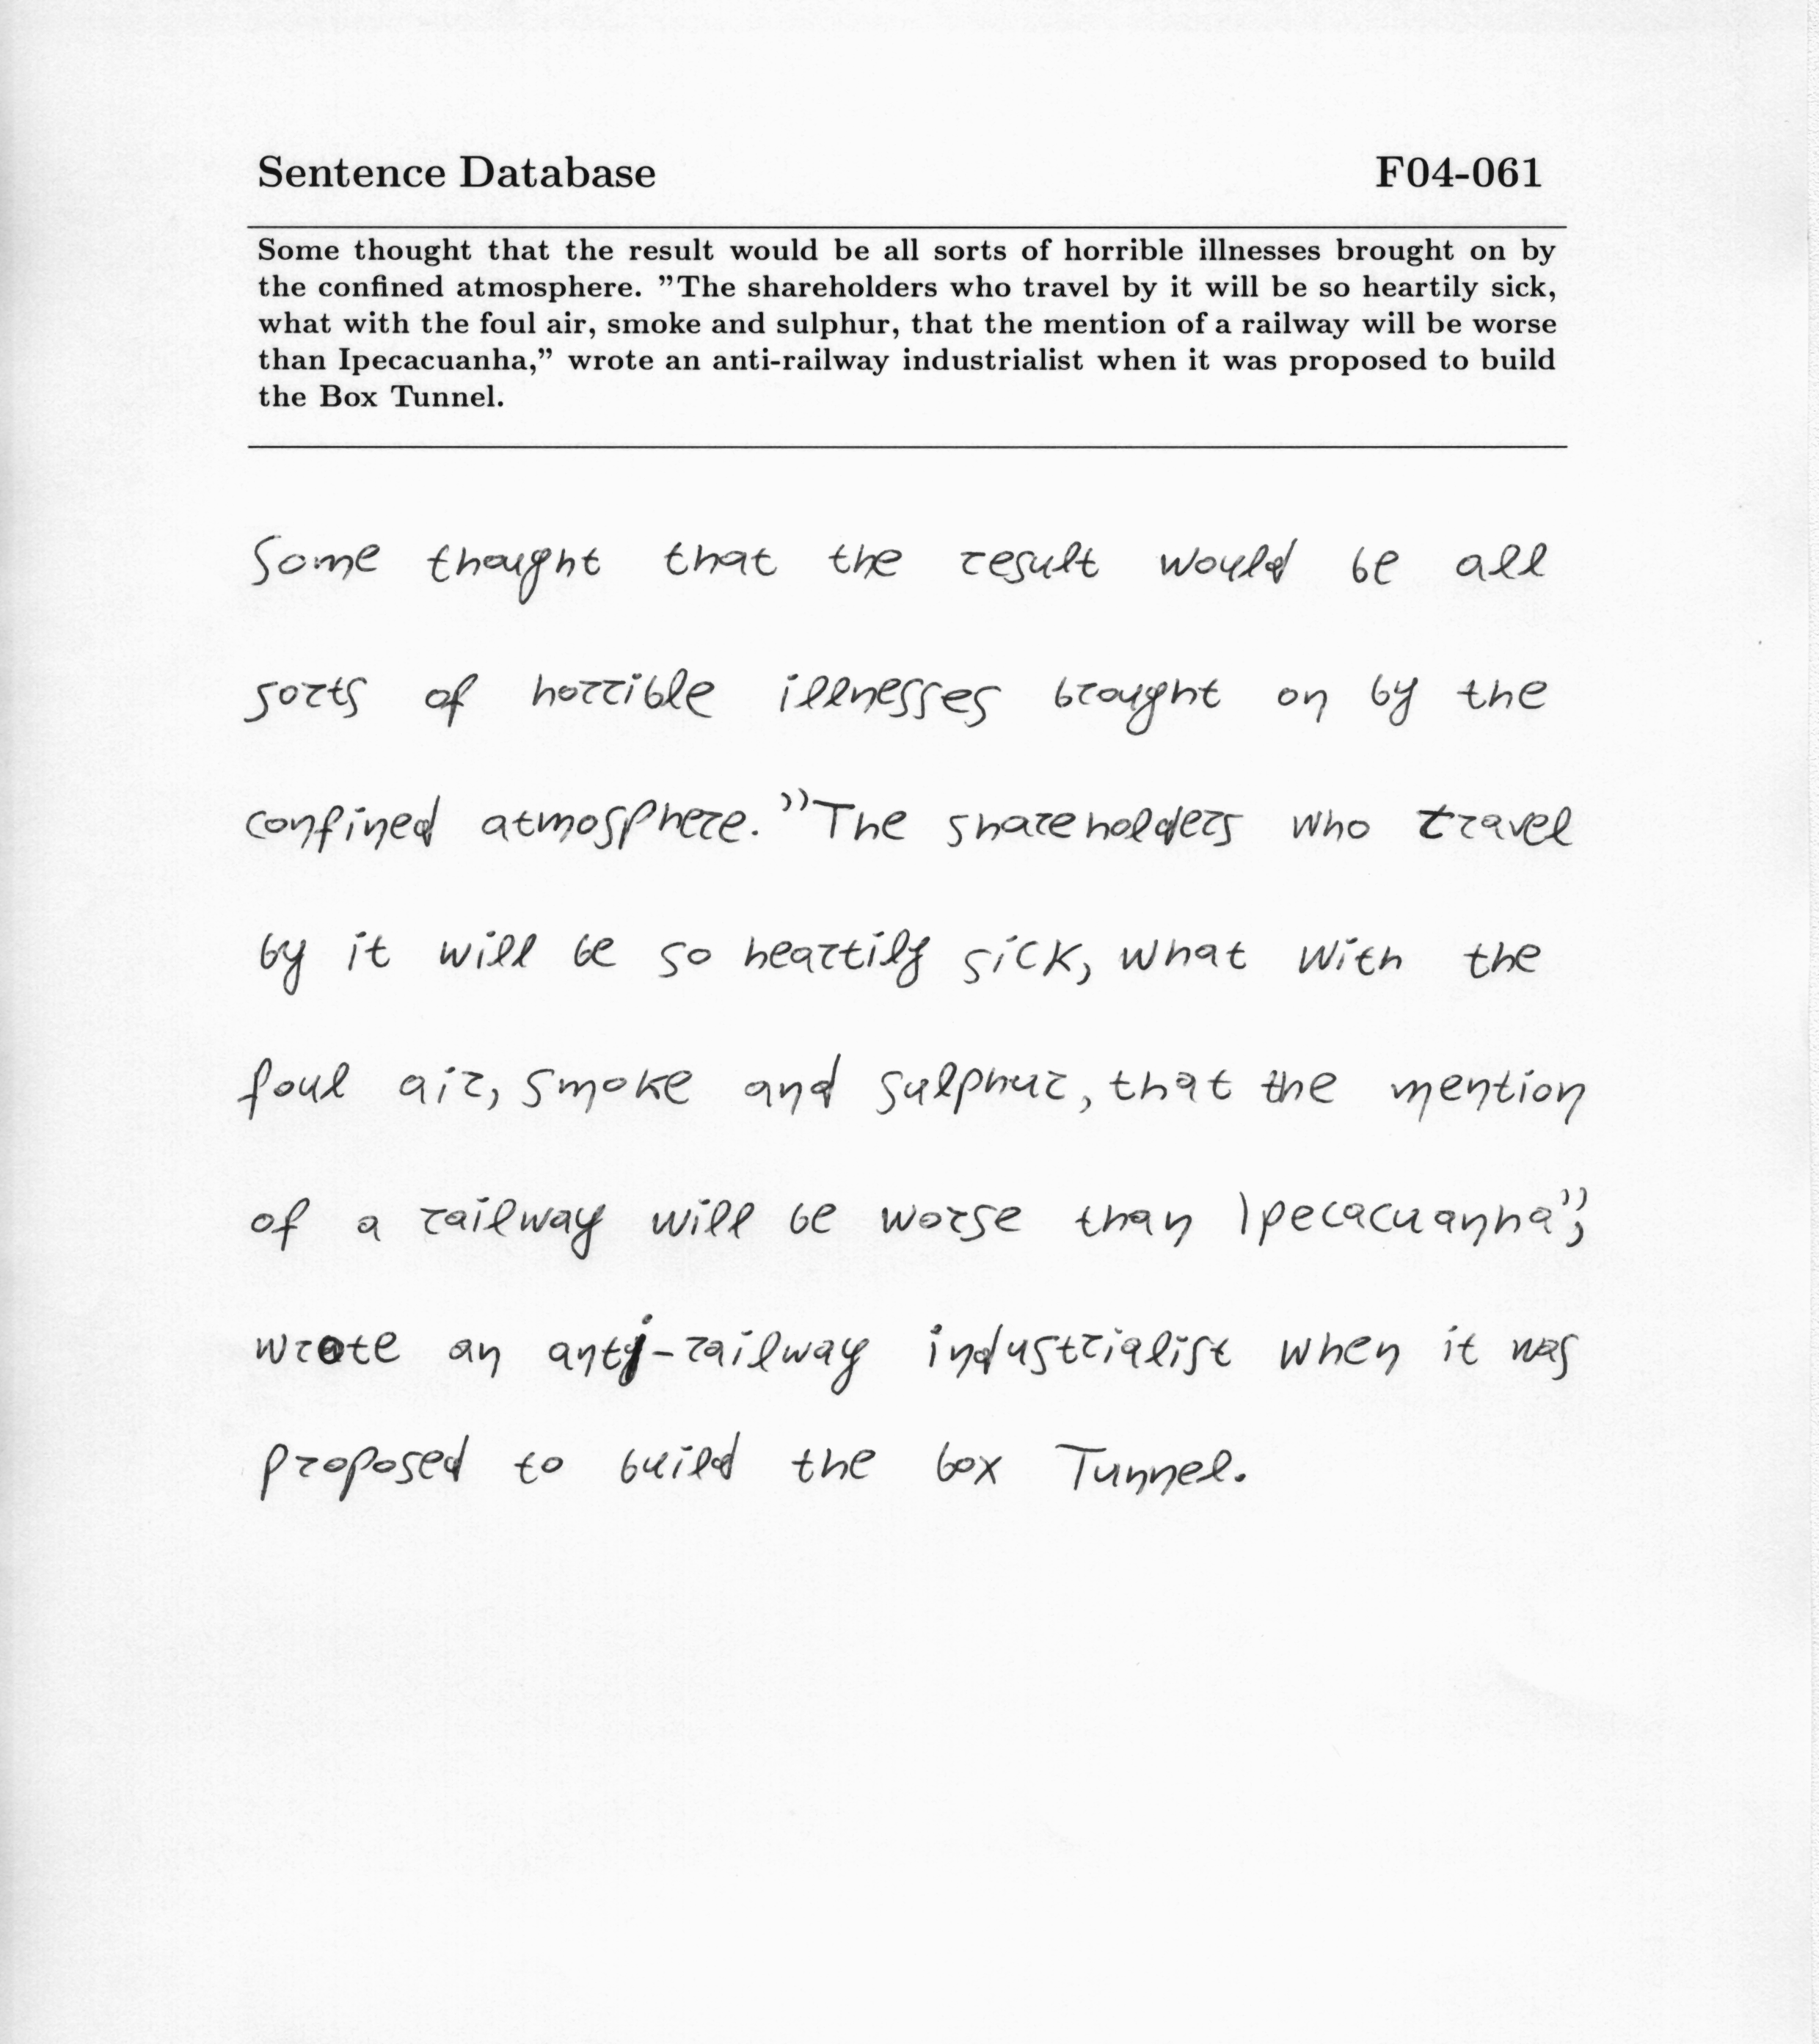 Sentence Database F04-061
Some thought that the result would be all sorts of horrible illnesses brought on by
the confined atmosphere. ”The shareholders who travel by it will be so heartily sick,
what with the foul air, smoke and sulphur, that the mention of a railway will be worse
than Ipecacuanha,” wrote an anti-railway industrialist when it was proposed to build
the Box Tunnel.
Some thought that the result would be all
sorts of horrible illnesses brought on by the
confined atmosphere. ”The shareholders who travel
by it will be so heartily sick, what with the
foul air, smoke and sulphur, that the mention
of a railway will be worse than Ipecacuanha”,
wrote an anti-railway industrialist when it was
proposed to build the box Tunnel.